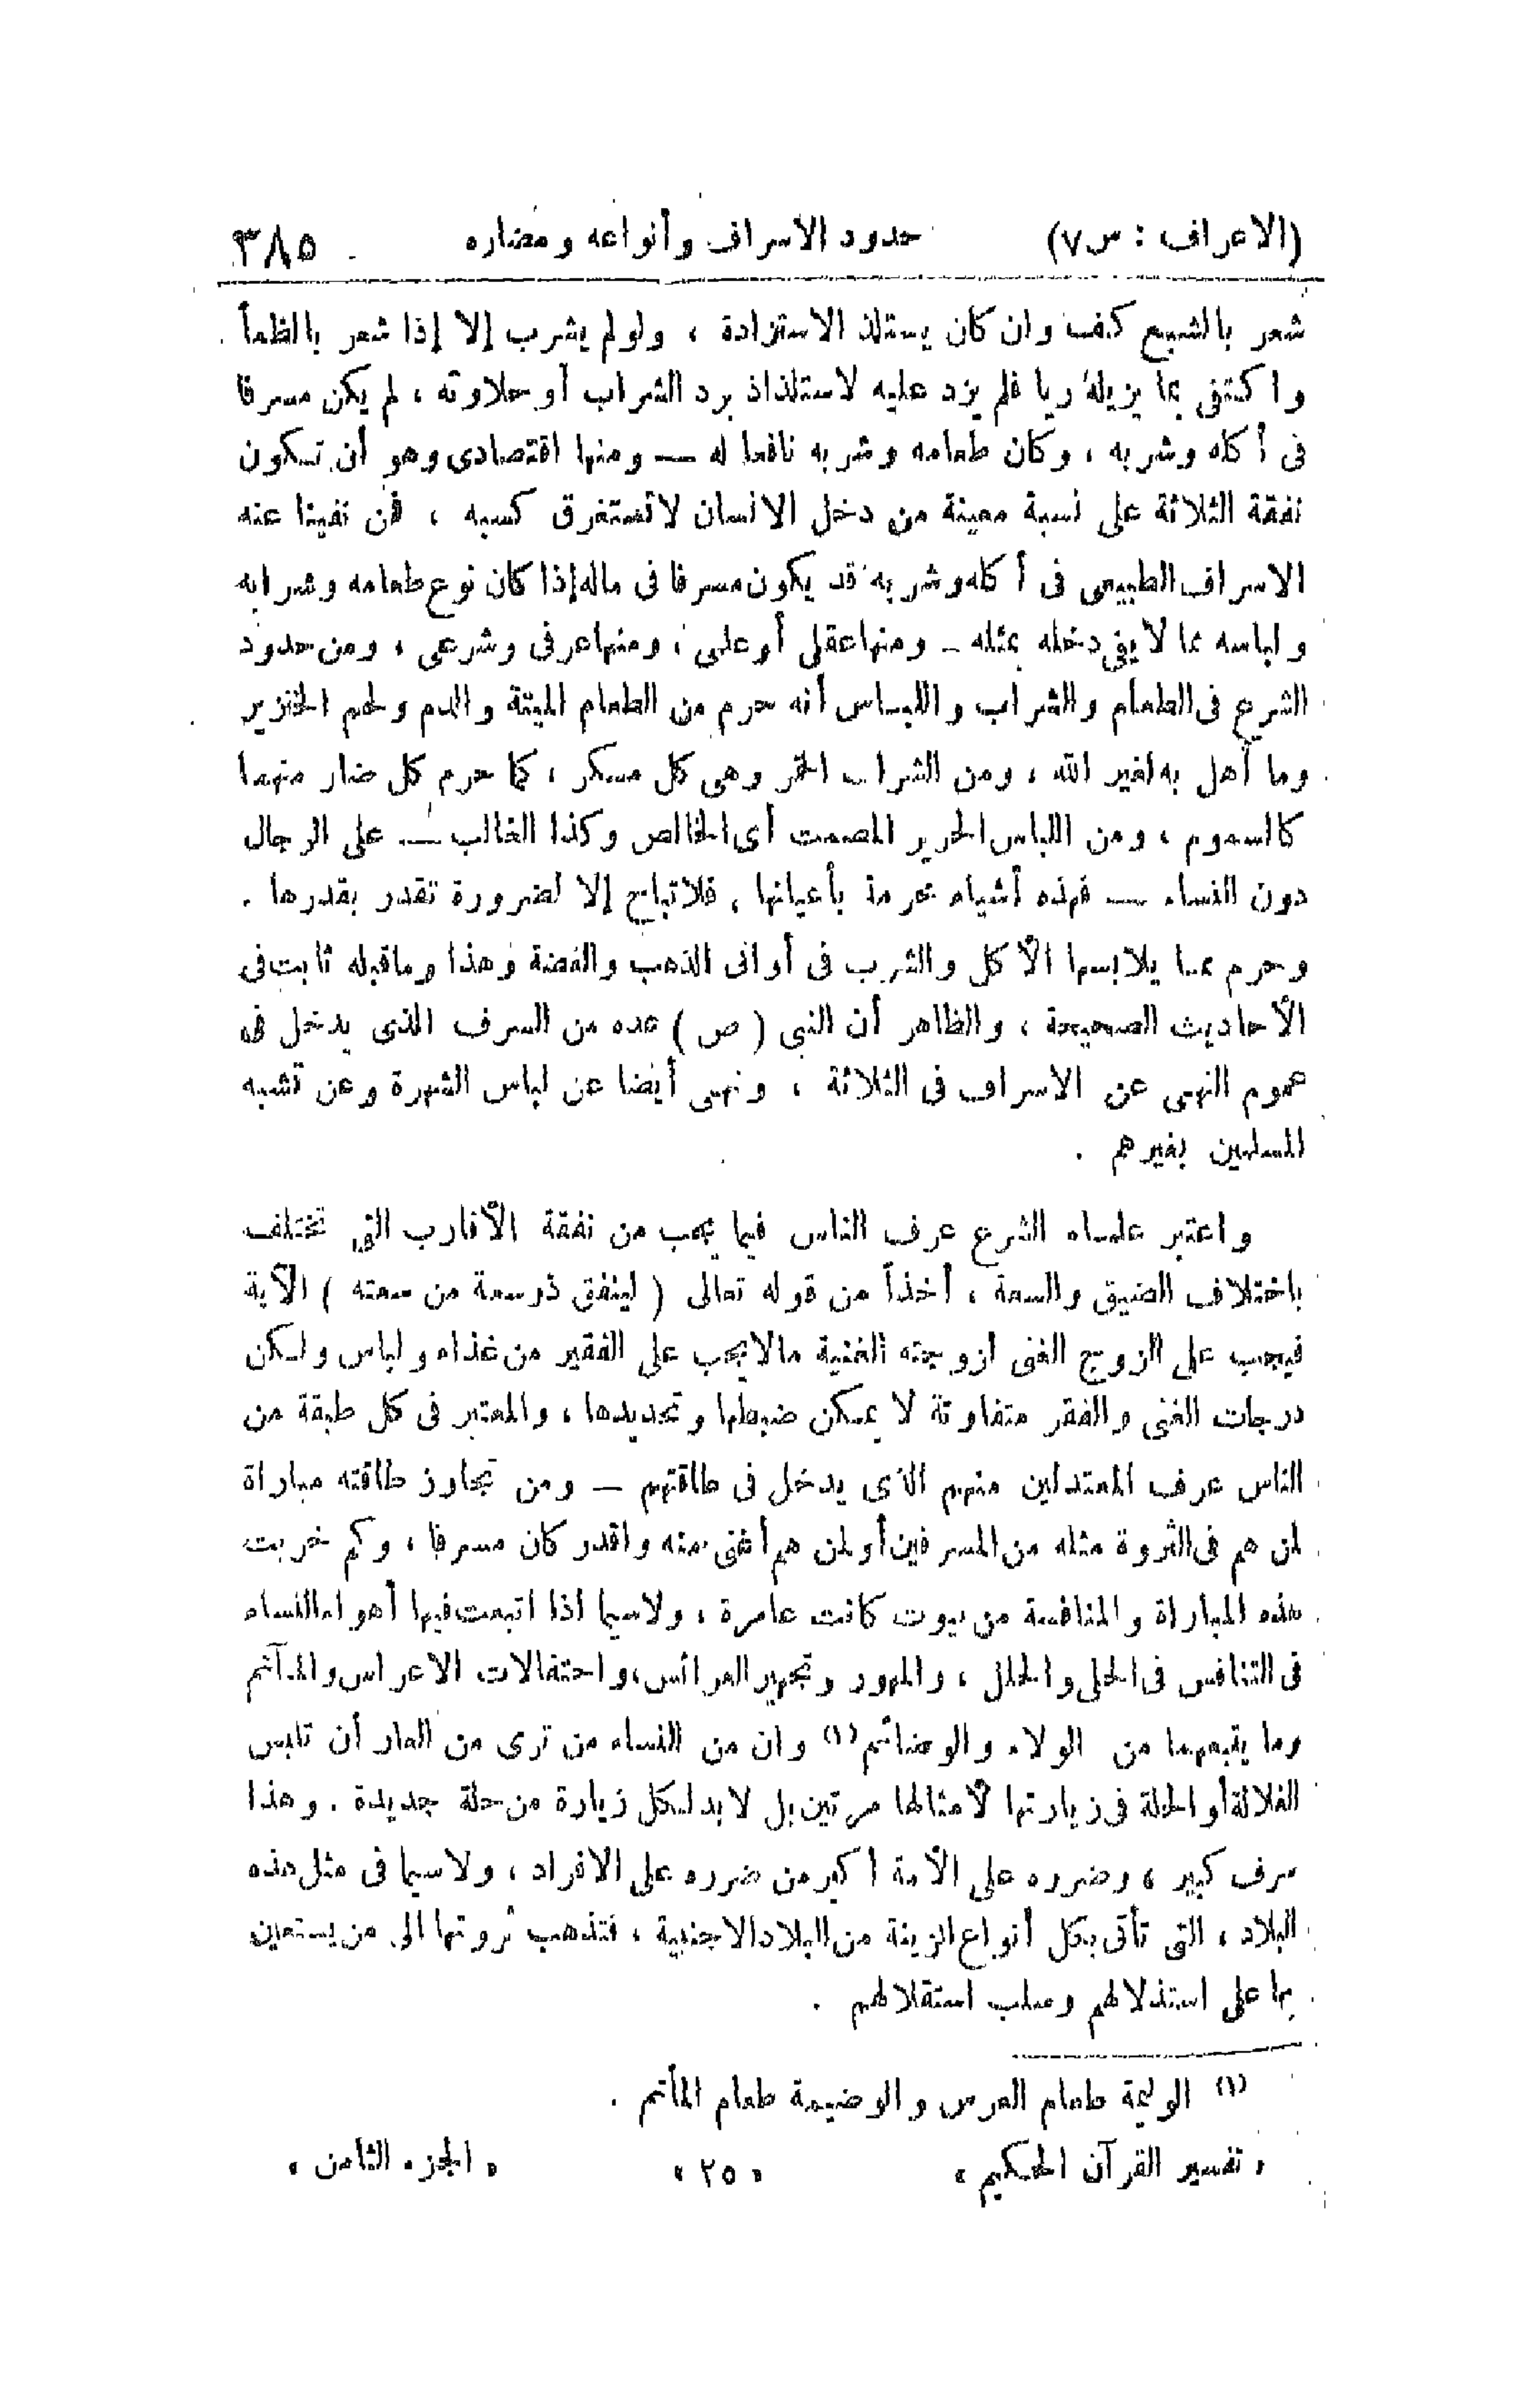 (الاعراف : س٧) حدود الاسراف وأنواعه ومضاره ٣٨٥
شعر بالشبع كف وان كان يستلذ الاستزادة ، ولو لم يشرب إلا إذا شعر بالظمأ
واكتفى بما يزيله ريا فلم يزد عليه لاستلذاذ برد الشراب أو حلاوته ، لم يكن مسرفا
فى أكله وشربه ، وكان طعامه وشربه نافعا له — ومنها اقتصادى وهو أن تكون
نفقة الثلاثة على نسبة معينة من دخل الانسان لاتستغرق كسبه ، فمن نفينا عنه
الاسراف الطبيعى فى أكله وشربه قد يكون مسرفا فى ماله إذا كان نوع طعامه وشرابه
ولباسه مما لا يفى دخله بمثله — ومنها عقلى أو علمى ، ومنها عرفى وشرعى ، ومن حدود
الشرع فى الطعام والشراب واللباس أنه حرم من الطعام الميتة والدم ولحم الخنزير
وما أهل به لغير الله ، ومن الشراب الخمر وهى كل مسكر ، كما حرم كل ضار منهما
كالسموم ، ومن اللباس الحرير المصمت أى الخالص وكذا الغالب — على الرجال
دون النساء — فهذه أشياء محرمة بأعيانها ، فلا تباح إلا لضرورة تقدر بقدرها .
وحرم مما يلابسها الأكل والشرب فى أوانى الذهب والفضة وهذا وماقبله ثابت فى
الأحاديث الصحيحة ، والظاهر أن النبى ( ص ) عده من السرف الذى يدخل فى
عموم النهى عن الاسراف فى الثلاثة ، ونهى أيضا عن لباس الشهرة وعن تشبه
المسلمين بغيرهم .
واعتبر علماء الشرع عرف الناس فيما يجب من نفقة الأقارب التى تختلف
باختلاف الضيق والسعة ، أخذاً من قوله تعالى ( لينفق ذو سعة من سعته ) الآية
فيجب على الزوج الغنى لزوجته الغنية مالا يجب على الفقير من غذاء ولباس ولكن
درجات الغنى والفقر متفاوتة لا يمكن ضبطها وتحديدها ، والمعتبر فى كل طبقة من
الناس عرف المعتدلين منهم الذى يدخل فى طاقتهم — ومن تجاوز طاقته مباراة
لمن هم فى الثروة مثله من المسرفين أو لمن هم أغنى منه واقدر كان مسرفا ، وكم خربت
هذه المباراة والمنافسة من بيوت كانت عامرة ، ولاسيما اذا اتبعت فيها أهواء النساء
فى التنافس فى الحلى والحلل ، والمهور وتجهيز العرائس ، واحتفالات الاعراس والمآتم
وما يتبعهما من الولائم والوضائم (١) وان من النساء من ترى من العار أن تلبس
الغلالة أو الحلة فى زيارتها لأمثالها مرتين بل لا بد لكل زيارة من حلة جديدة . وهذا
سرف كبير ، وضرره على الأمة أكبر من ضرره على الافراد ، ولاسيما فى مثل هذه
البلاد ، التى تأتى بكل أنواع الزينة من البلاد الاجنبية ، فتذهب ثروتها الى من يستعين
بها على استذلالهم وسلب استقلالهم .
(١) الوليمة طعام العرس والوضيمة طعام المأتم .
« تفسير القرآن الحكيم » « ٢٥ » « الجزء الثامن »